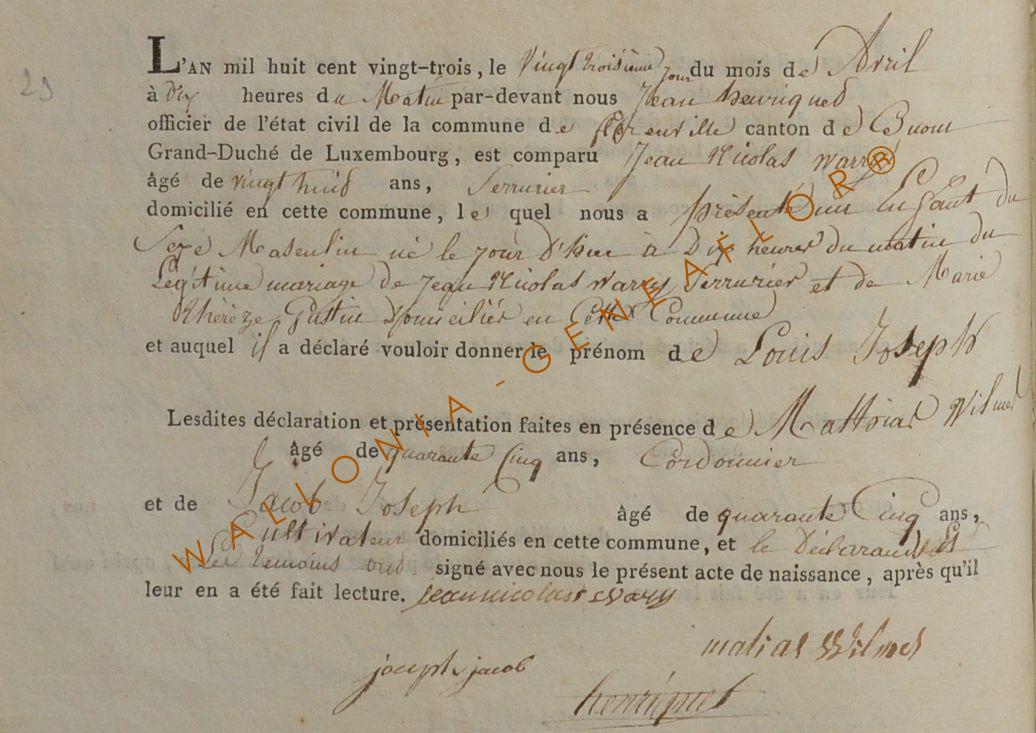 29
L'AN mil huit cent vingt-trois, le vingt troisième jour du mois de Avril
à Dix heures du Matin par-devant nous Jean henriques
officier de l'état civil de la commune de florenville canton de
Grand-Duché de Luxembourg, est comparu Jean Nicolas warry
âgé de vingt huid ans, Serrurier
domicilié en cette commune, le quel nous a présenté un Enfant du
Sexe Masculin né le jour D'hier à Dix heures du matin du
Légitime mariage de Jean Nicolas warry Serrurier et de Marie
thérèze Domiciliés en Cette Commune
et auquel il a déclaré vouloir donner le prénom de Louis Joseph
Lesdites déclaration et présentation faites en présence de Wilmes
âgé de quarante Cinq ans, Cordonnier
et de Jacob Joseph âgé de quarante Cinq ans,
Cultivateur domiciliés en cette commune, et le Déclarand Et
Les temoins ond signé avec nous le présent acte de naissance, après qu'il
leur en a été fait lecture. jean nicolas wary
matias Wilmes
joseph jacob
henriquet
WALLONIA-GENEAFLOR®